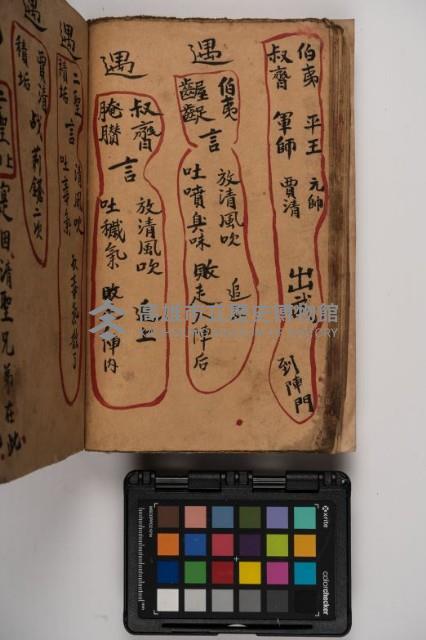 伯夷 平王 元帥
叔齊 軍師 賈清 出武 到陣門
遇 伯夷
齷齪 言 放清風吹 追
吐噴臭味 敗走陣后
遇 叔齊
腌臢 言 放清風吹 追上
吐穢氣 敗陣内
遇 二聖
積垢 言 清風吹
遇 賈清战荊鐽二次
積垢
二聖上
清聖兄弟在此
高雄市立歷史博物館
KAOHSIUNG MUSEUM OF HISTORY
x-rite
colorchecker